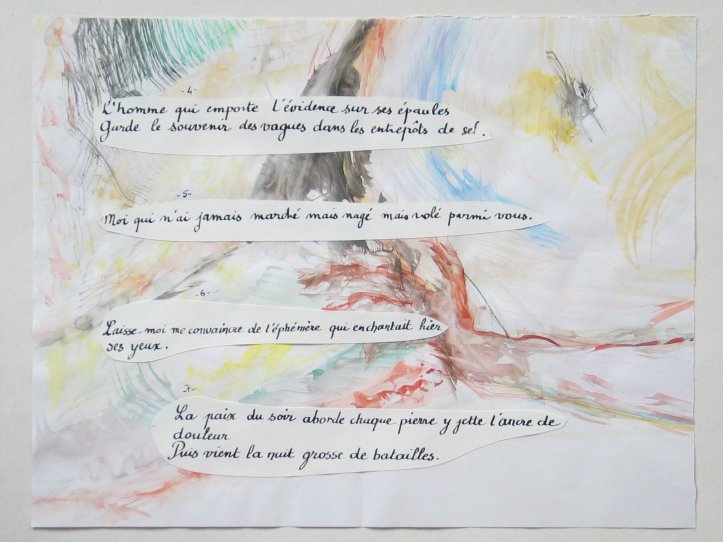 -4-
L'homme qui emporte l'évidence sur ses épaules
Garde le souvenir des vagues dans les entrepôts de sel.
-5-
Moi qui n'ai jamais marché mais nagé mais volé parmi vous.
-6-
Laisse-moi me convaincre de l'éphémère qui enchantait hier
ses yeux.
-7-
La paix du soir aborde chaque pierre y jette l'ancre de
douleur
Puis vient la nuit grosse de batailles.